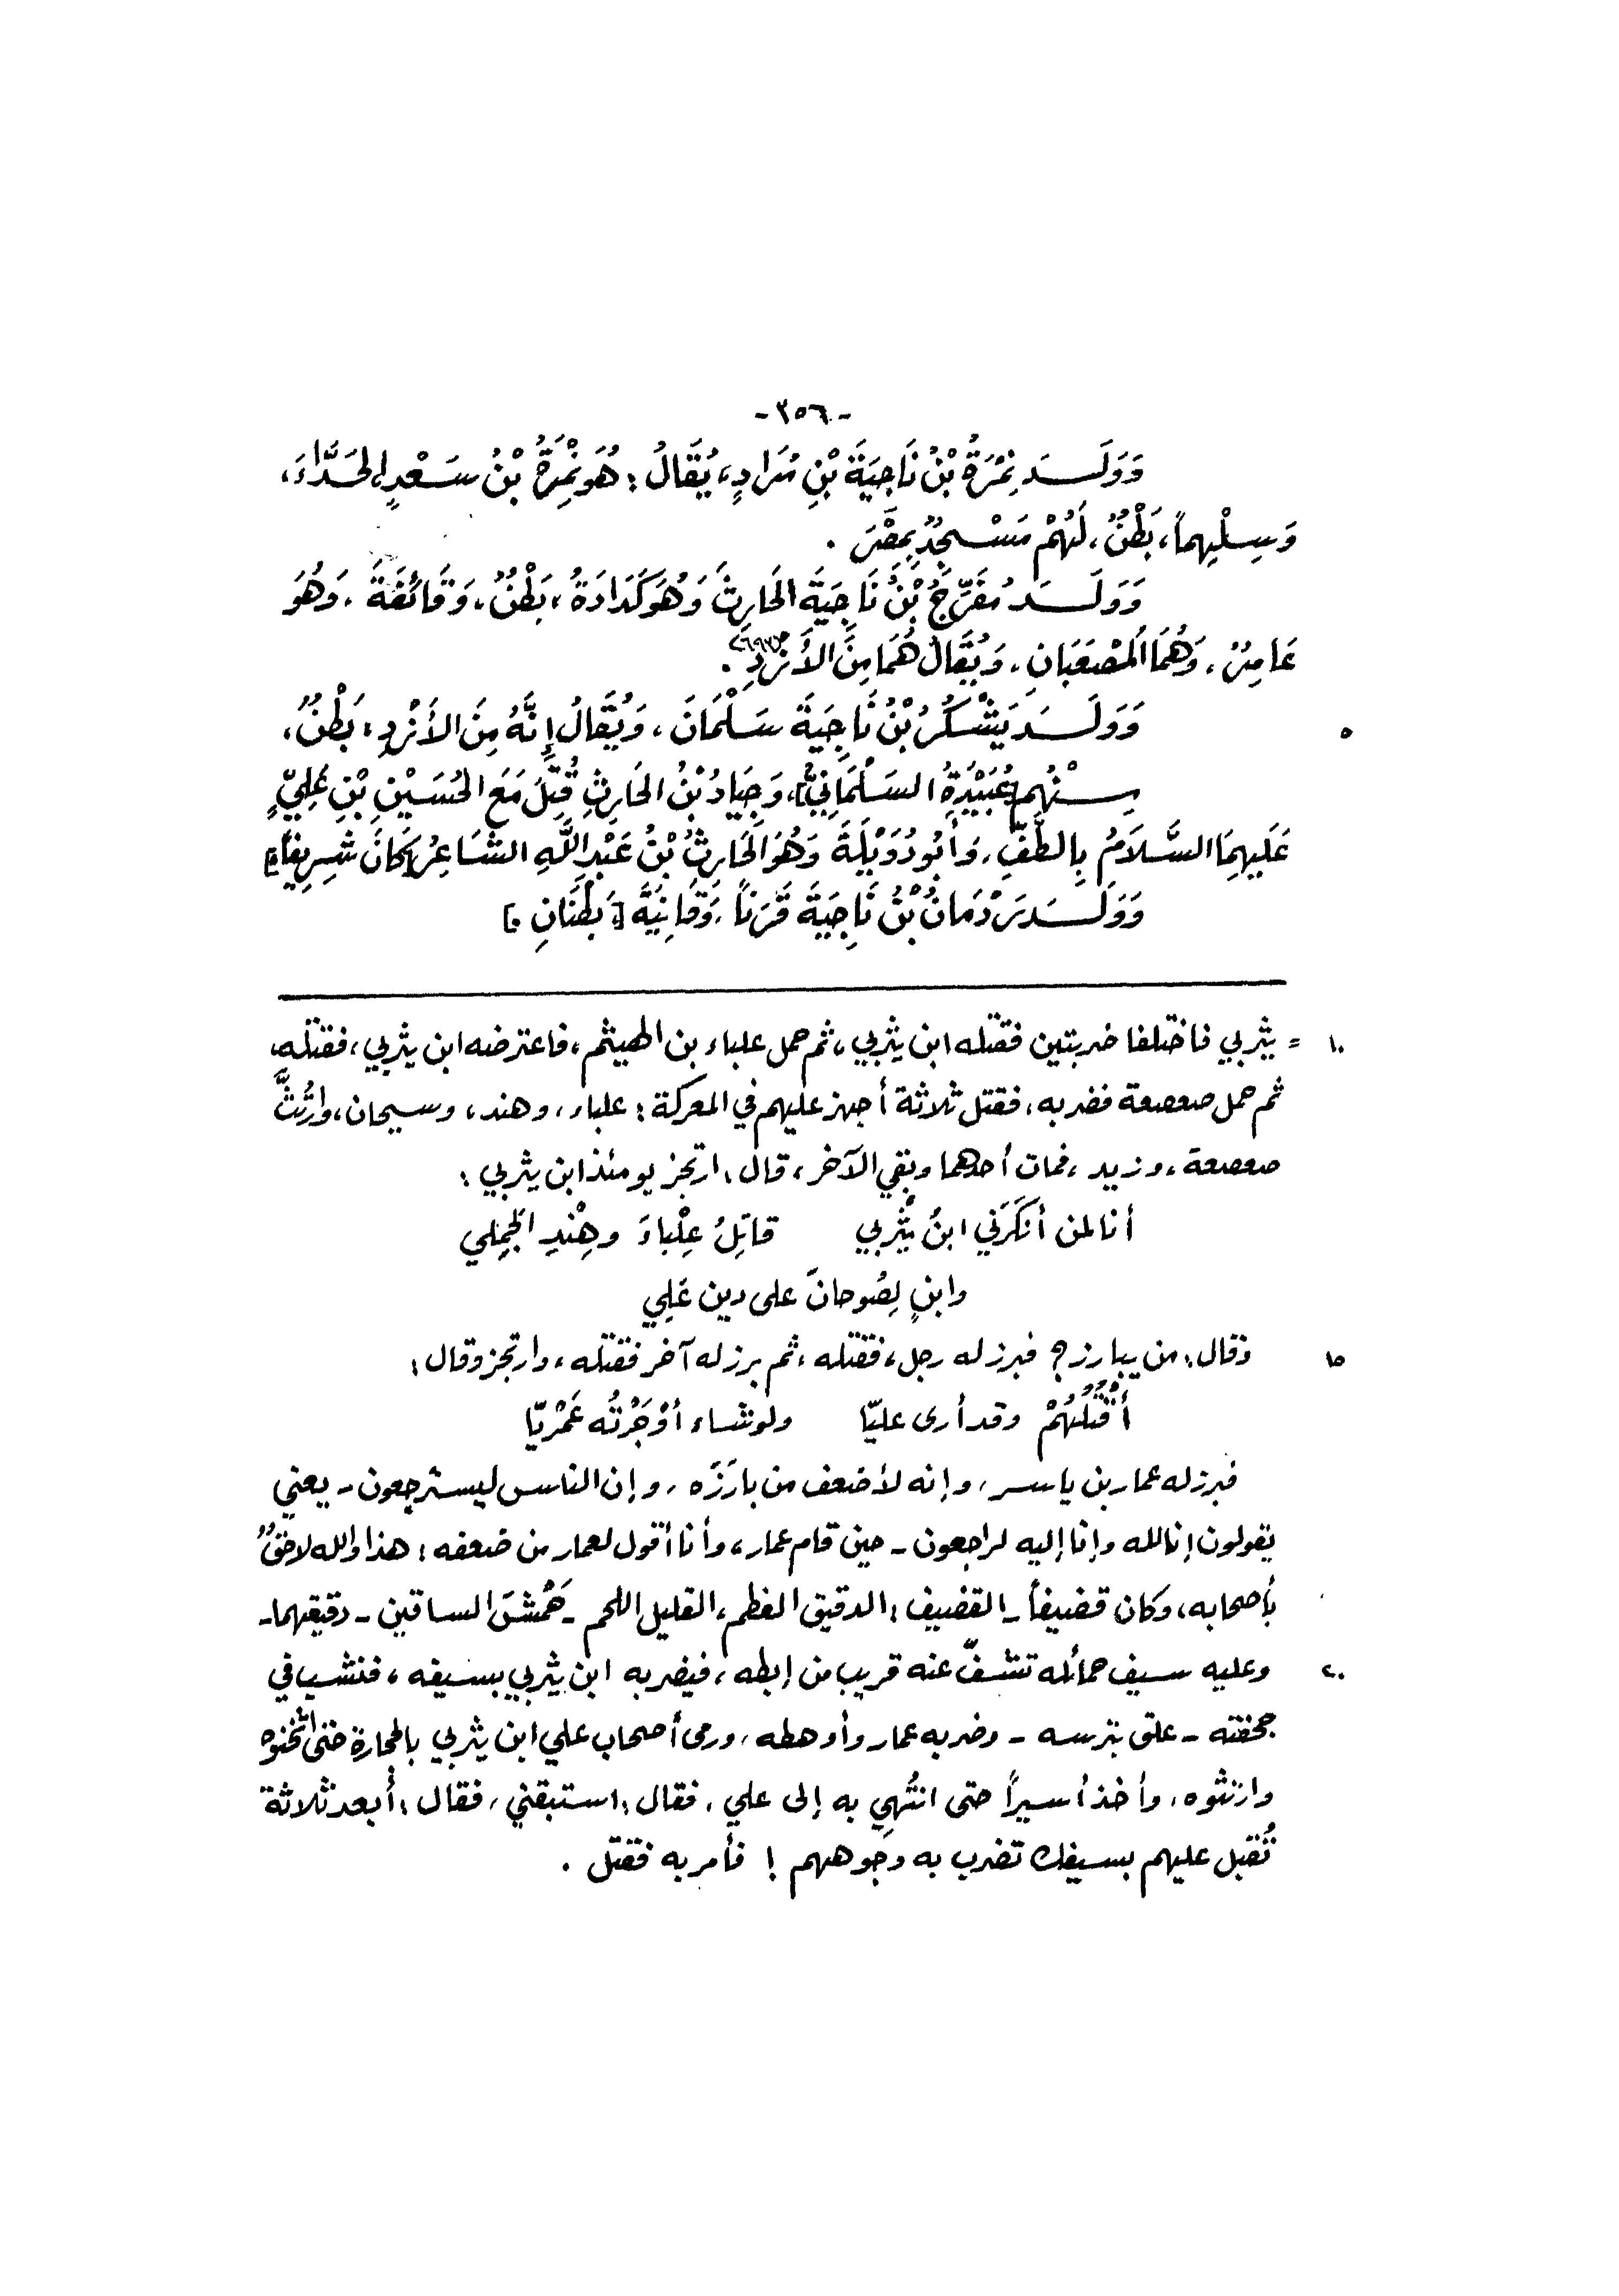 -٣٥٦-
وَوَلَدَ نِمْرَةُ بْنُ نَاجِيَةَ بْنِ مُرَادٍ، يُقَالُ: هُوَ نِمْرَةُ بْنُ سَعْدٍ، الحَدَّاءَ،
وَسِلْهِماً، بَطْنٌ، لَهُمْ مَسْجِدٌ بِمِصْرَ.
وَوَلَدَ مُفَرِّجُ بْنُ نَاجِيَةَ الحَارِثَ وَهُوَ كَدَادَةُ، بَطْنٌ، وَقَائفَةَ، وَهُوَ
عَامِرٌ، وَهُمَا المُصْعَبَانِ، وَيُقَالُ هُمَا مِنَ الأَزْدِ.
٥ وَوَلَدَ يَشْكُرُ بْنُ نَاجِيَةَ سَلْمَانَ، وَيُقَالُ إِنَّهُ مِنَ الأَزْدِ، بَطْنٌ،
مِنْهُم [عُبَيْدَةُ السَلْمَانِيُّ]، وَجِيَادُ بْنُ الحَارِثِ قُتِلَ مَعَ الحُسَيْنِ بْنِ عَلِيٍّ
عَلَيهِمَا السَّلاَمُ بِالطَّفِّ، وَأَبُو دُوَيْلَةَ وَهُوَ الحَارِثُ بْنُ عَبْدِ اللَّهِ الشَاعِرُ [كَانَ شَرِيفاً]
وَوَلَدَ رَدْمَانُ بْنُ نَاجِيَةَ قَرَناً، وَقَانِيَةَ [بَطْنَانِ.]
١٠ = يثربي فاختلفا ضربتين فقتله ابن يثربي، ثم حمل علباء بن الهيثم، فاعترضه ابن يثربي، فقتله،
ثم حمل صعصعة فضربه، فقتل ثلاثة أجهز عليهم في المعركة: علباء، وهند، وسيحان، وارتُثَّ
صعصعة، وزيد، فمات أحدهما وبقي الآخر، قال: ارتجز يومئذ ابن يثربي:
أنا لمن أنكَرَني ابنُ يَثْرِبي قاتِلُ عِلْباءَ وهِنْدِ الجَمِلي
وابنٍ لِصُوحانَ على دين عَلِي
١٥ وقال: من يبارز؟ فبرز له رجل، فقتله، ثم برز له آخر فقتله، وارتجز وقال:
أَقْتُلُهُمْ وقد أرى عليّا ولو شاء أوْجَرْتُه عَمْرِيّا
فبرز له عمار بن ياسر، وإنه لأضعف من بارَزَه، وإن الناس ليسترجعون - يعني
يقولون إنا لله وإنا إليه لراجعون - حين قام عمار، وأنا أقول لعمار من ضعفه: هذا والله لاحقٌ
بأصحابه، وكان قضيفاً - القضيف: الدقيق العظم، القليل اللحم - حَمْشَ الساقين - دقيقهما -
٢٠ وعليه سيف حمائله تشفّ عنه قريب من إبطه، فيضربه ابن يثربي بسيفه، فنشب في
حجفته - علق بترسه - وضربه عمار وأوهطه، ورمى أصحاب علي ابن يثربي بالحجارة حتى أثخنوه
وارتثوه، وأخذ أسيراً حتى انتُهِي به إلى علي، فقال: استبقني، فقال: أبعد ثلاثة
تُقبل عليهم بسيفك تضرب به وجوههم! فأمر به فقتل.